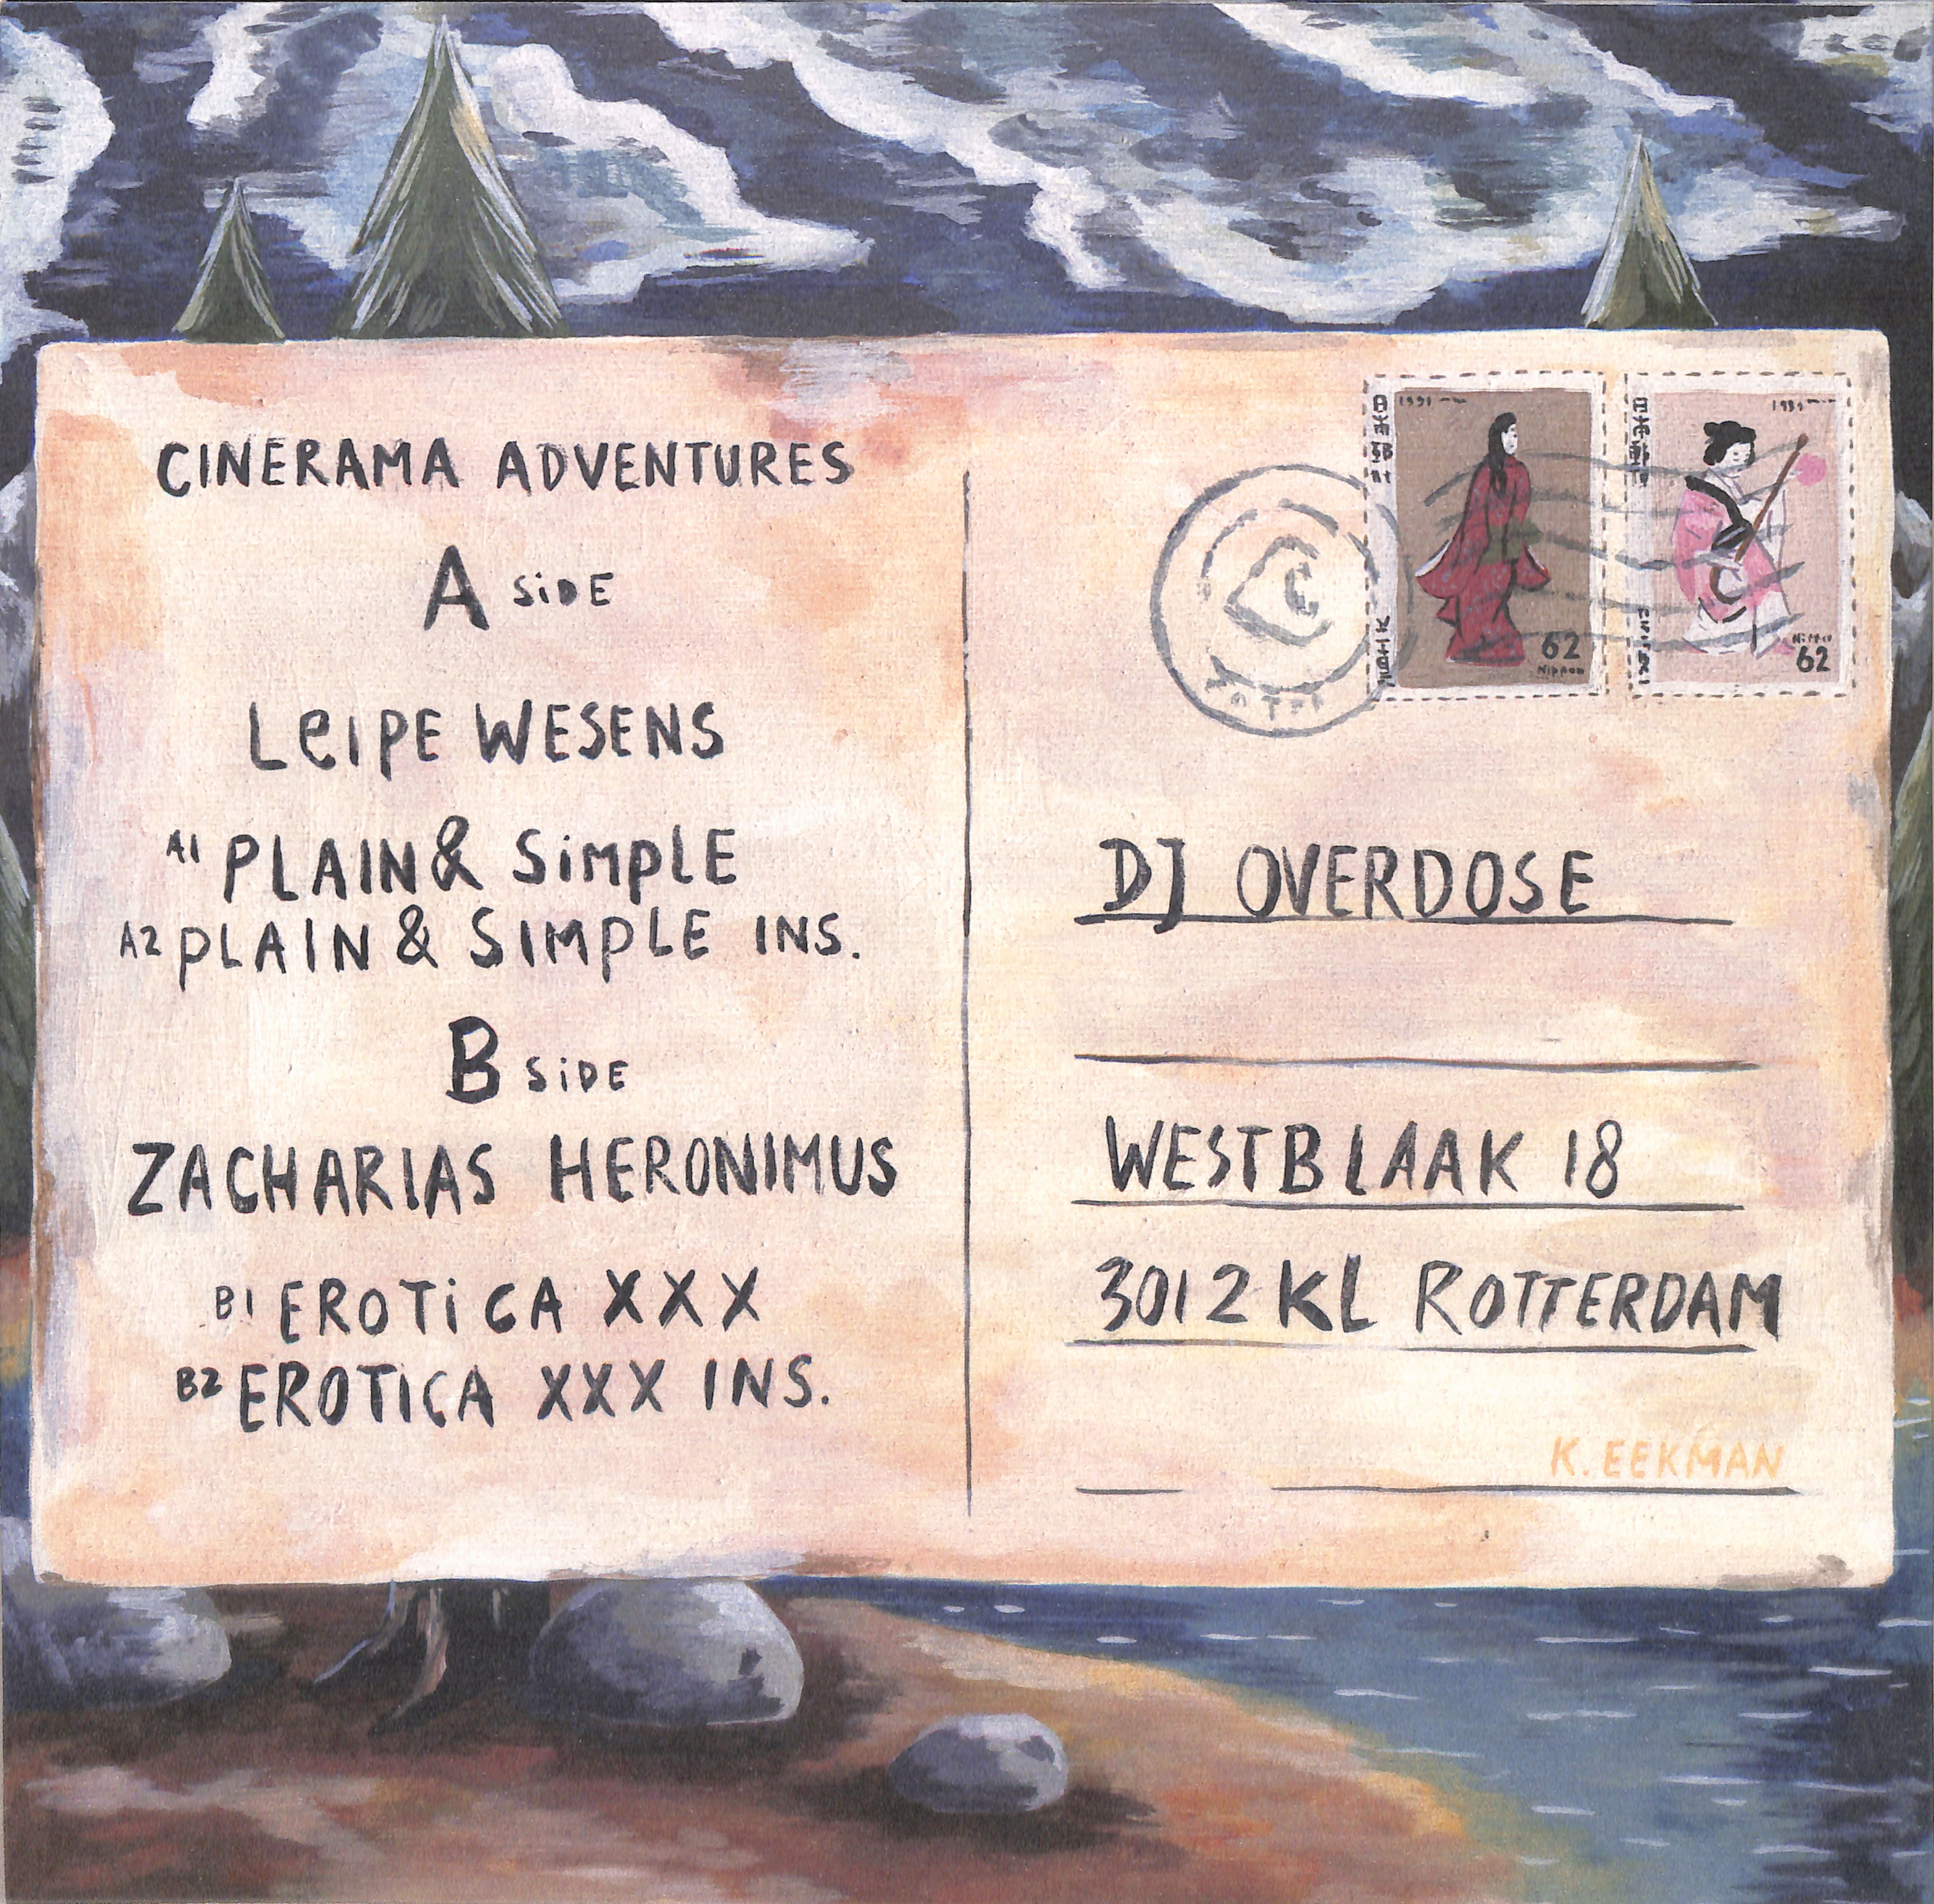 CINERAMA ADVENTURES
A SiDE
LeIPE WESENS
A1 PLAIN & SiMPLE
A2 PLAIN & SIMPLE INS.
B SiDE
ZACHARIAS HERONIMUS
B1 EROTiCA XXX
B2 EROTICA XXX INS.
1991
62
Nippon
62
DJ OVERDOSE
WESTBLAAK 18
3012 KL ROTTERDAM
K. EEKMAN